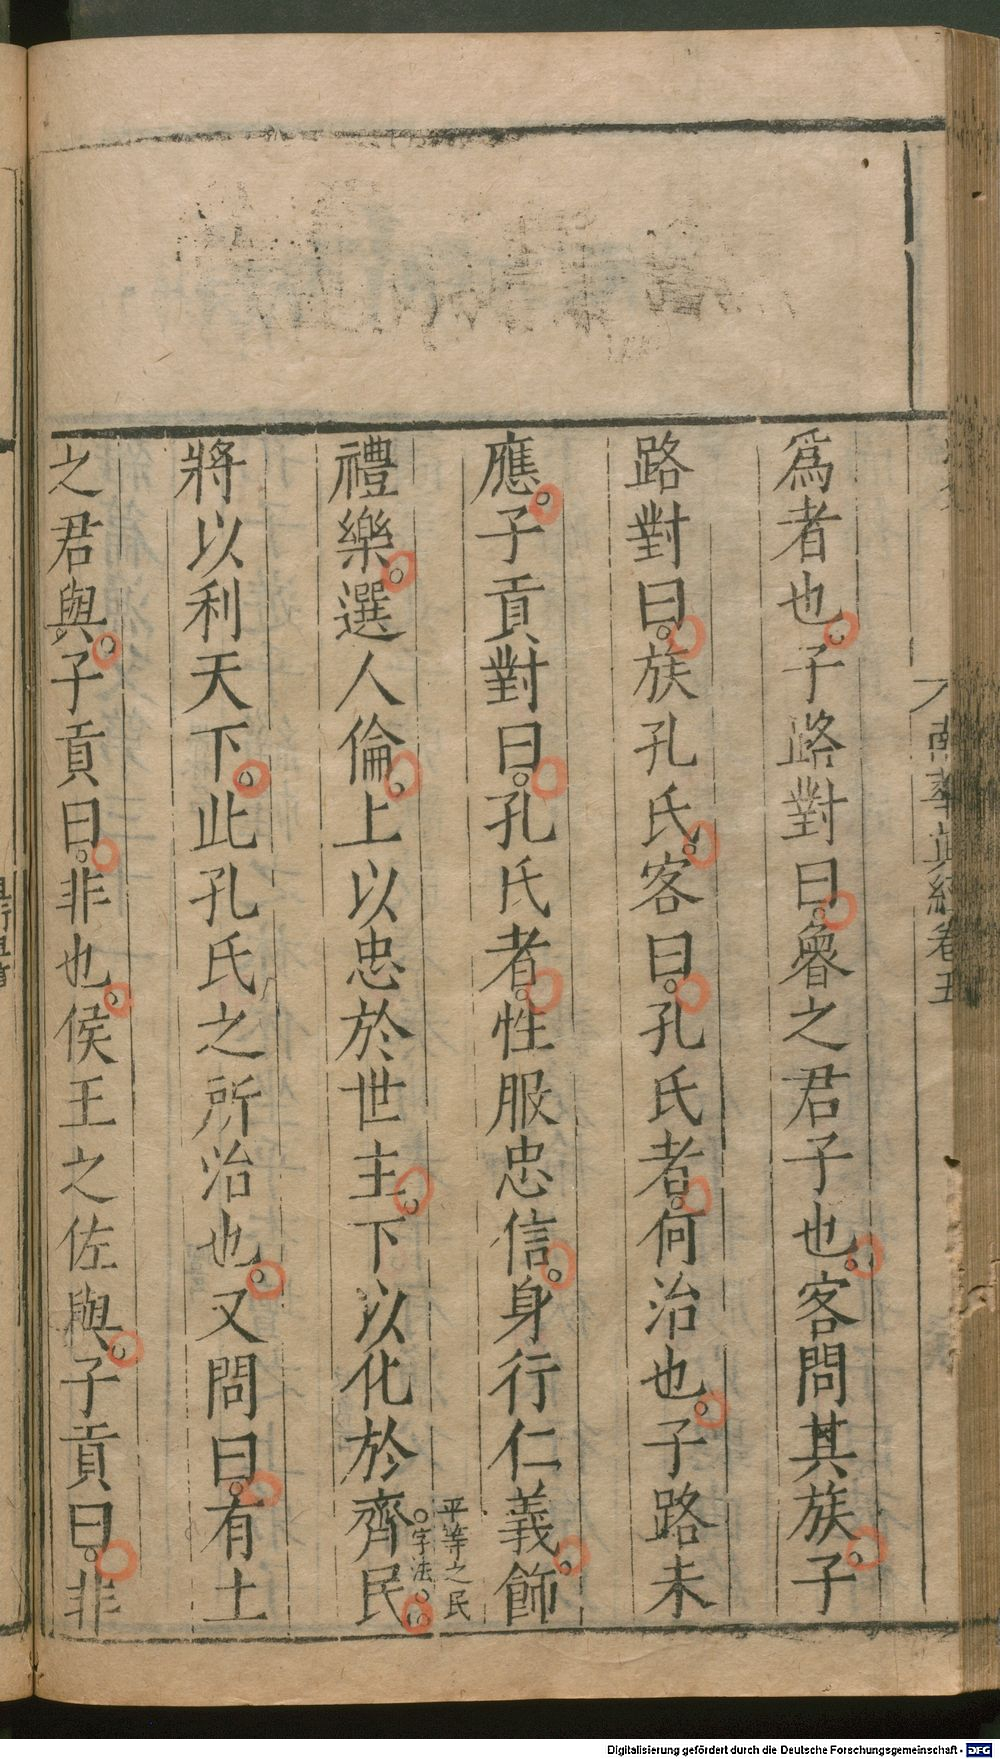 南華真經卷五
爲者也。子路對曰。魯之君子也。客問其族。子
路對曰。族孔氏。客曰。孔氏者。何治也。子路未
應。子貢對曰。孔氏者。性服忠信。身行仁義。飾
平等之民
○字法。
禮樂。選人倫。上以忠於世主。下以化於齊民。
將以利天下。此孔氏之所治也。又問曰。有土
之君與。子貢曰。非也。侯王之佐與。子貢曰。非
Digitalisierung gefördert durch die Deutsche Forschungsgemeinschaft - DFG